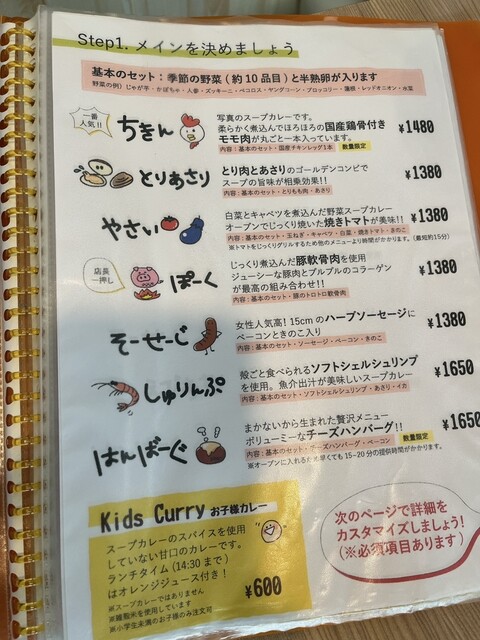 Step1. メインを決めましょう
基本のセット：季節の野菜（約10品目）と半熟卵が入ります
野菜の例）じゃが芋・かぼちゃ・人参・ズッキーニ・ペコロス・ヤングコーン・ブロッコリー・蓮根・レッドオニオン・水菜
一番人気!!
ちきん
写真のスープカレーです。
柔らかく煮込んでほろほろの国産鶏骨付き
モモ肉が丸ごと一本入っています。
内容：基本のセット・国産チキンレッグ1本
数量限定
¥1480
とりあさり
とり肉とあさりのゴールデンコンビで
スープの旨味が相乗効果!!
内容：基本のセット・とりもも肉・あさり
¥1380
やさい
白菜とキャベツを煮込んだ野菜スープカレー
オーブンでじっくり焼いた焼きトマトが美味!!
内容：基本のセット・玉ねぎ・キャベツ・白菜・焼きトマト・きのこ
※トマトをじっくりグリルするため他のメニューより時間がかかります。（最短約15分）
¥1380
店長一押し
ぽーく
じっくり煮込んだ豚軟骨肉を使用
ジューシーな豚肉とプルプルのコラーゲン
が最高の組み合わせ!!
内容：基本のセット・豚のトロトロ軟骨肉
¥1380
そーせーじ
女性人気高! 15cmのハーブソーセージに
ベーコンときのこ入り
内容：基本のセット・ソーセージ・ベーコン・きのこ
¥1380
しゅりんぷ
殻ごと食べられるソフトシェルシュリンプ
を使用。魚介出汁が美味しいスープカレー
内容：基本のセット・ソフトシェルシュリンプ・あさり・イカ
¥1650
はんばーぐ
まかないから生まれた贅沢メニュー
ボリューミーなチーズハンバーグ!!
内容：基本のセット・チーズハンバーグ・ベーコン
数量限定
※オーブンに入れるため早くても15-20分の提供時間がかかります。
¥1650
Kids Curry お子様カレー
スープカレーのスパイスを使用
していない甘口のカレーです。
ランチタイム（14:30まで）
はオレンジジュース付き！
※スープカレーではありません
※雑穀米を使用しています
※小学生未満のお子様のみ注文可
¥600
次のページで詳細を
カスタマイズしましょう！
（※必須項目あります）